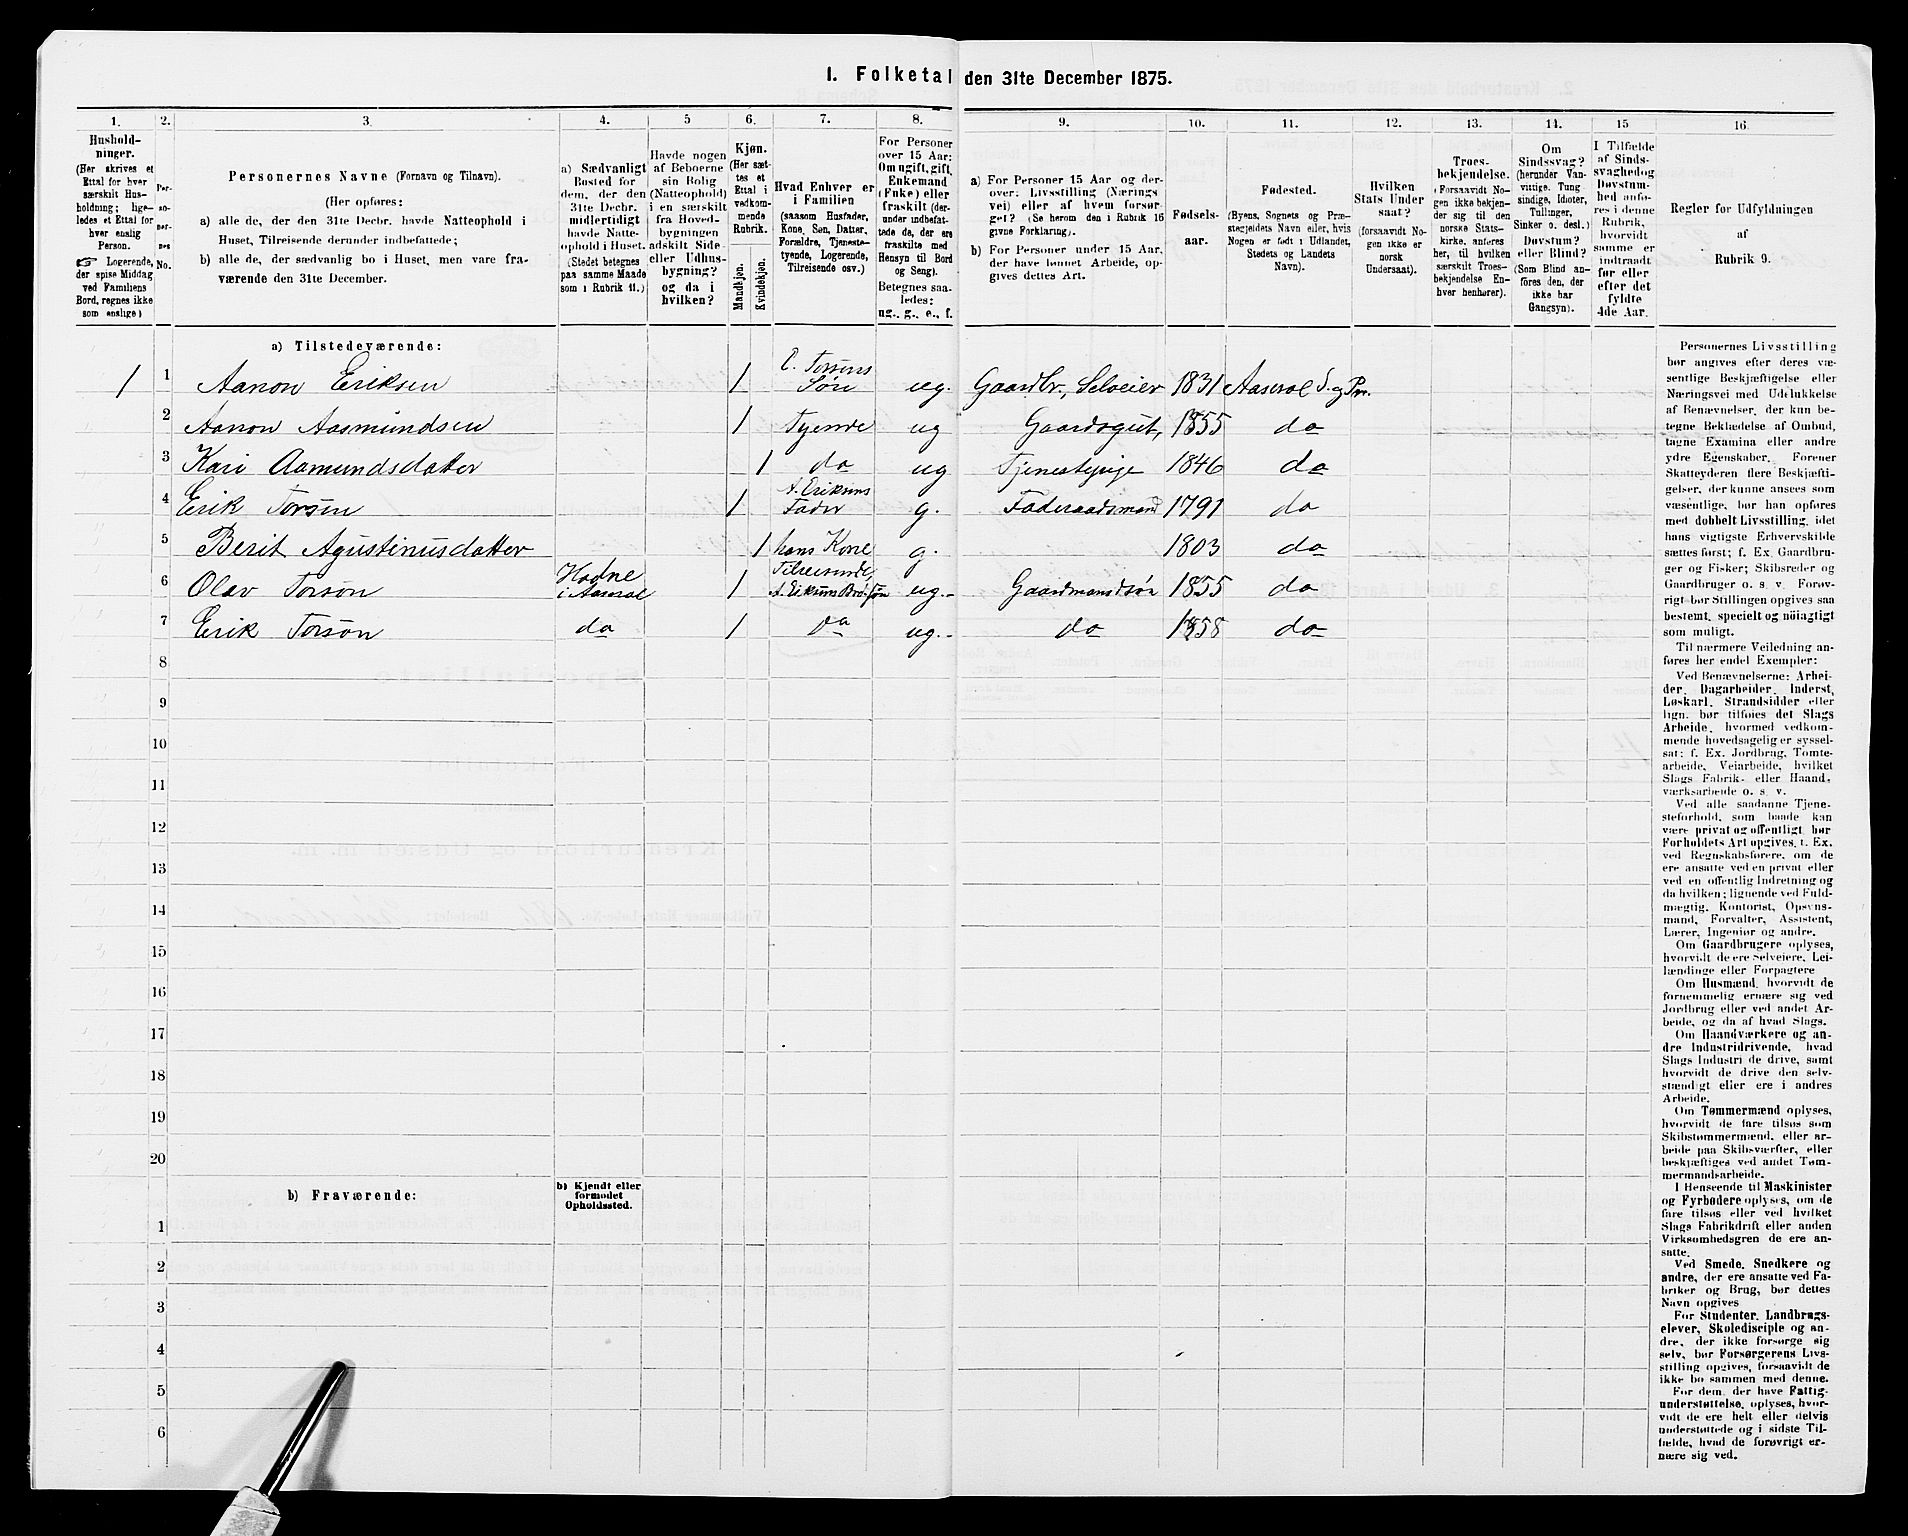 1. Folketal den 31te December 1875.
1. 2. 3. 4. 5 6. 7. 8. 9. 10. 11. 12. 13. 14. 15 16.
Hushold-
ninger.
(Her skrives et
Ettal for hver
særskilt Hus-
holdning; lige-
ledes et Ettal for
hver enslig
Person.
☞ Logerende,
der spise Middag
ved Familiens
Bord, regnes ikke
som enslige)
Per-
so-
ner-
nes
No.
Personernes Navne (Fornavn og Tilnavn).
(Her opføres:
a) alle de, der den 31te Decbr. havde Natteophold i
Huset, Tilreisende derunder indbefattede;
b) alle de, der sædvanlig bo i Huset, men vare fra-
værende den 31te December.
a) Sædvanligt
Bosted for
dem, der den
31te Decbr.
midlertidigt
havde Natte-
ophold i Huset.
(Stedet betegnes
paa samme Maade
som i Rubrik 11.)
Havde nogen
af Beboerne
sin Bolig
(Natteophold)
i en særskilt
fra Hoved-
bygningen
adskilt Side-
eller Udhus-
bygning?
og da i
hvilken?
Kjøn.
(Her sæt-
tes et
Ettal i
vedkom-
mende
Rubrik.
Mandkjøn.
Kvindekjøn.
Hvad Enhver er
i Familien
(saasom Husfader,
Kone, Søn, Datter,
Forældre, Tjeneste-
tyende, Logerende,
Tilreisende osv.)
For Personer
over 15 Aar:
Om ugift, gift,
Enkemand
(Enke) eller
fraskilt (der-
under indbefat-
tede de, der ere
fraskilte med
Hensyn til Bord
og Seng).
Betegnes saa-
ledes:
ug., g., e., f.
a) For Personer 15 Aar og der-
over: Livsstilling (Nærings
vei) eller af hvem forsør-
get? (Se herom den i Rubrik 16
givne Forklaring).
b) For Personer under 15 Aar,
der have lønnet Arbeide, op-
gives dettes Art.
Fødsels-
aar.
Fødested.
(Byens, Sognets og Præ-
stegjeldets Navn eller, hvis
Nogen er født i Udlandet,
Stedets og Landets
Navn).
Hvilken
Stats Under
saat?
(forsaavidt No-
gen ikke er
norsk
Undersaat).
Troes-
bekjendelse.
(Forsaavidt No-
gen ikke bekjen-
der sig til den
norske Stats-
kirke, anføres
her, til hvilken
særskilt Troes-
bekjendelse En-
hver henhører).
Om
Sindssvag?
(herunder Van-
vittige, Tung-
sindige, Idioter,
Tullinger,
Sinker o. desl.)
Døvstum?
eller Blind?
(Som Blind an-
føres den, der
ikke har
Gangsyn).
I Tilfælde
af Sinds-
svaghed og
Døvstum-
hed anfø-
res i denne
Rubrik,
hvorvidt
samme er
indtraadt
før eller
efter det
fyldte
4de Aar.
Regler for Udfyldningen
af
Rubrik 9.
a) Tilstedeværende:
1 1 Aanon Eriksen 1 E. Torsens Søn ug. Gaardbr., Selveier 1831 Aaseral S. og Pr.
2 Aanon Aasmundsen 1 Tyende ug Gaardsgut, 1855 do
3 Kari Aamundsdatter 1 do ug Tjenestepige 1846 do
4 Erik Torsen 1 A. Eriksens Fader g. Føderaadsmand 1791 do
5 Berit Agustinusdatter 1 hans Kone g. 1803 do
6 Olav Torsøn i Aaseral 1 Tilreisende, ug.- Gaardmandsøn 1855 do
7 Erik Torsøn do 1 do ug.- do 1858 do
8
9
10
11
12
13
14
15
16
17
18
19
20
b) Fraværende:
b) Kjendt eller
formodet
Opholdssted.
1
2
3
4
5
6
Personernes Livsstilling
bør angives efter deres væ-
sentlige Beskjæftigelse eller
Næringsvei med Udelukkelse
af Benævnelser, der kun be-
tegne Beklædelse af Ombud,
tagne Examina eller andre
ydre Egenskaber. Forener
Skatteyderen flere Beskjæfti-
gelser, der kunne ansees som
væsentlige, bør han opføres
med dobbelt Livsstilling, idet
hans vigtigste Erhvervskilde
sættes først; f. Ex. Gaardbru-
ger og Fisker; Skibsreder og
Gaardbruger o. s. v. Forøv-
rigt bør Stillingen opgives saa
bestemt, specielt og nøiagtigt
som muligt.
Til nærmere Veiledning an-
føres her endel Exempler:
Ved Benævnelserne: Arbei-
der, Dagarbeider, Inderst,
Løskarl, Strandsidder eller
lign. bør tilføies det Slags
Arbeide, hvormed vedkom-
mende hovedsagelig er syssel-
sat; f. Ex. Jordbrug, Tomte-
arbeide, Veiarbeide, hvilket
Slags Fabrik- eller Haand-
værksarbeide o. s. v.
Ved alle saadanne Tjene-
steforhold, som baade kan
være privat og offentligt, bør
Forholdets Art opgives, t. Ex.
ved Regnskabsførere, om de
ere ansatte ved en privat eller
ved en offentlig Indretning og
da hvilken; lignende ved Fuld-
mægtig, Kontorist, Opsyns-
mand, Forvalter, Assistent,
Lærer, Ingeniør og andre.
Om Gaardbrugere oplyses,
hvorvidt de ere Selveiere, Lei-
lændinge eller Forpagtere
Om Husmænd, hvorvidt de
fornemmelig ernære sig ved
Jordbrug eller ved andet Ar-
beide, og da af hvad Slags.
Om Haandværkere og an-
dre Industridrivende, hvad
Slags Industri de drive, samt
hvorvidt de drive den selv-
stændigt eller ere i andres
Arbeide.
Om Tømmermænd oplyses,
hvorvidt de fare tilsøs som
Skibstømmermænd, eller ar-
beide paa Skibsværfter, eller
beskjæftiges ved andet Tøm-
mermandsarbeide.
I Henseende til Maskinister
og Fyrbødere oplyses, om de
fare tilsøs eller ved hvilket
Slags Fabrikdrift eller anden
Virksomhedsgren de ere an-
satte.
Ved Smede, Snedkere og
andre, der ere ansatte ved Fa-
briker og Brug, bør dettes
Navn opgives
For Studenter, Landbrugs-
elever, Skoledisciple og an-
dre, der ikke forsørge sig
selv, bør Forsørgerens Livs-
stilling opgives, forsaavidt de
ikke bo sammen med denne.
For dem, der have Fattig-
understøttelse, oplyses, hvor-
vidt de ere helt eller delvis
understøttede og i sidste Til-
fælde, hvad de forøvrigt er-
nære sig ved.